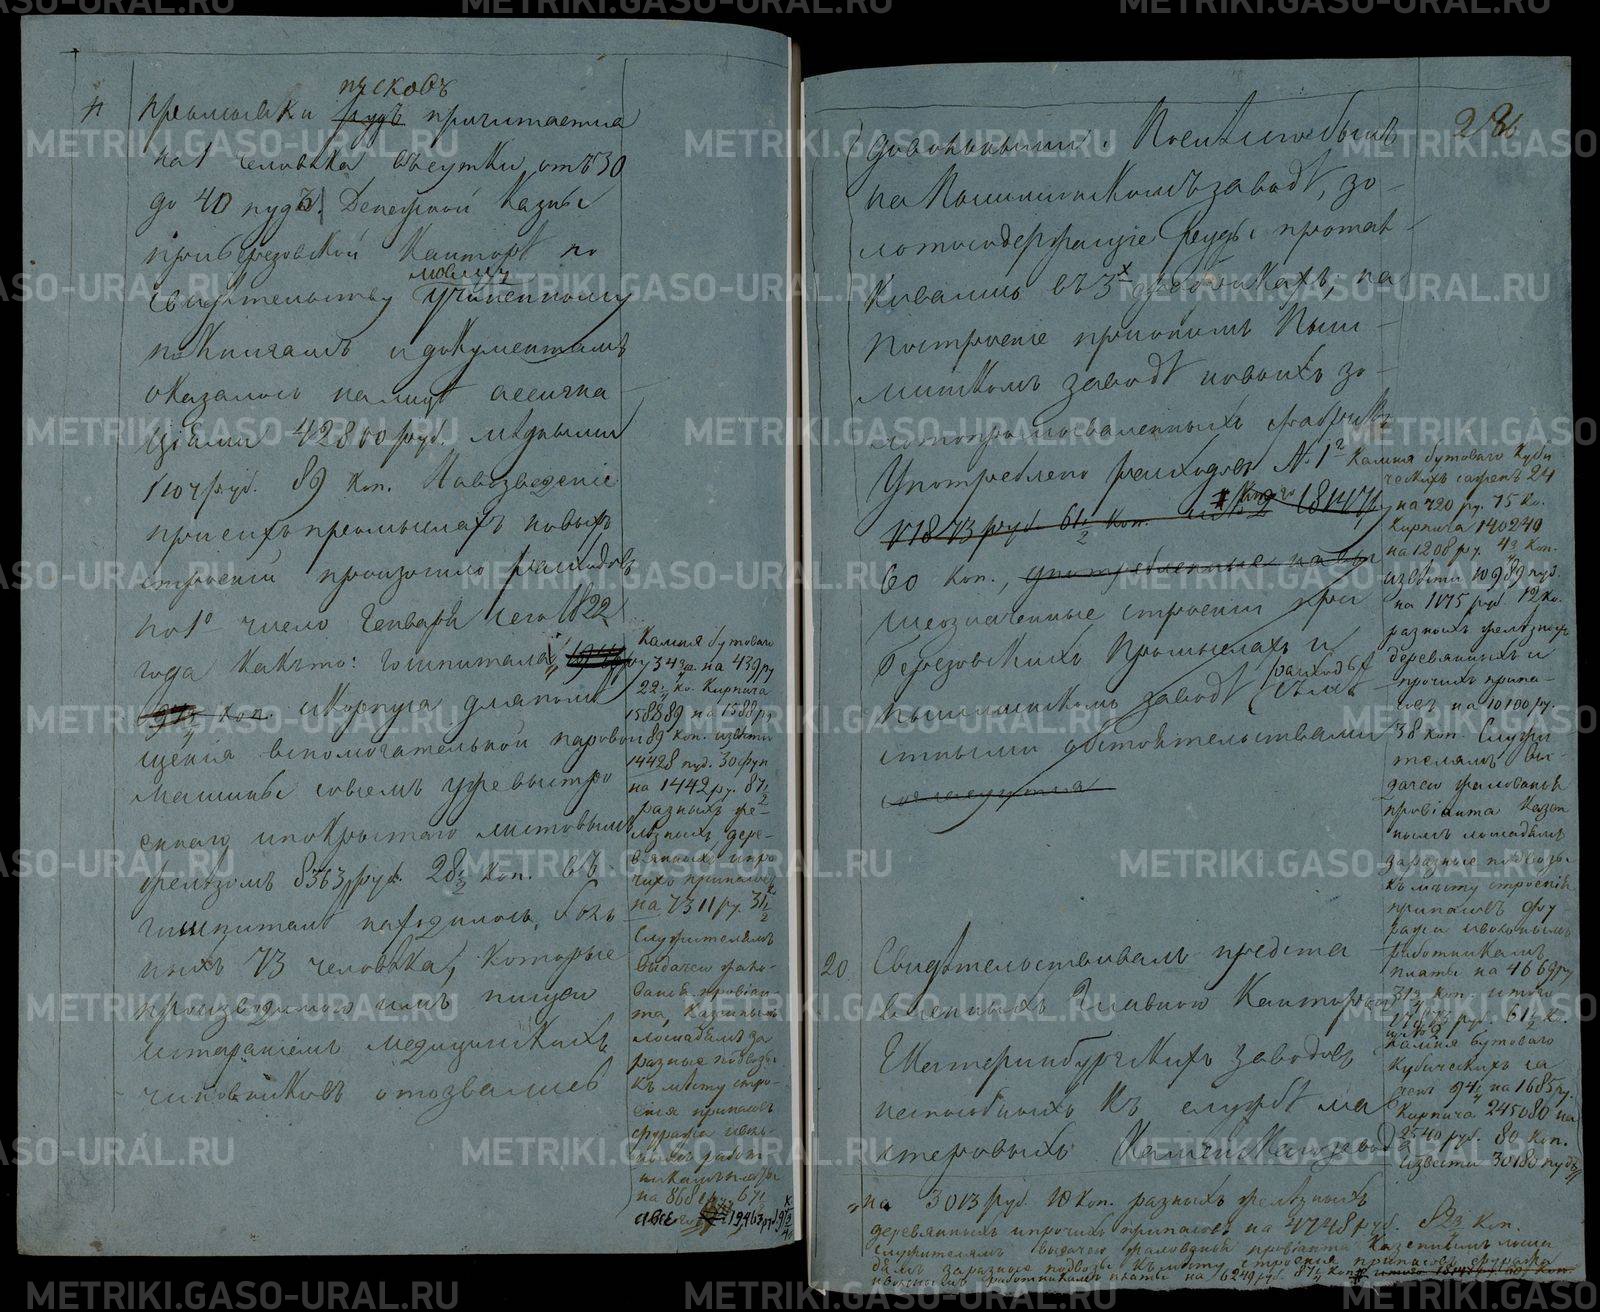 песковъ
промывки рудъ причитается
на 1 человѣка въ сутки отъ 30
до 40 пудъ. Денежной Казны
при Березовской Конторѣ по
моему
свидѣтельству учиненному
по Книгамъ и документамъ
оказалось на лицо ассигна-
ціями 42800 руб. мѣдными
руб. 89 коп. На возведеніе
при сихъ промыслахъ новыхъ
строеній произошло расходовъ
по 1е число Генваря сего 1822
года какъ то: Гошпиталя
коп. и Корпуса для помѣ-
щенія вспомогательной паровой
машины совсемъ уже выстро
еннаго и покрытаго листовымъ
желѣзомъ 8363 руб. 28 1/2 коп. въ
гошпиталѣ находилось боль
ныхъ 73 человѣка, которые
производимою имъ пищею
и стараніемъ медицинскихъ
чиновниковъ отозвались
Камня бутоваго
на 439 ру
22 1/4 ко. Кирпича
158889 на 1588 ру
89 коп. извести
14428 пуд. 30 фун
на 1442 ру. 87 1/2
разныхъ же-
лѣзныхъ дере-
вянныхъ и про
чихъ припасовъ
на 7311 ру. 31 1/2
Служителямъ
выдачею жало-
ванья провіан-
та, Казеннымъ
лошадямъ за
разные подвозы
къ мѣсту стро-
енія припасовъ
фуража воль-
нымъ работ
никамъ платы
на 8681 ру. 67 1/4
а все 19463 ру
286
довольными. Послѣ чего былъ
на Пышминскомъ заводѣ, зо-
лотосодержащіе руды протал-
кивались въ 3х фабрикахъ, на
построеніе при ономъ Пыш-
минскомъ заводѣ новыхъ зо-
лотопромываленныхъ фабрикъ
Употреблено расходовъ № 1го
17873 руб. 61 1/2 коп. и № 2 18147 ру
60 коп., употребленные на вы
шеозначенные строеніи при
Березовскихъ Промыслахъ и
Пышминскомъ заводѣ расходы
съ мѣ
стными обстоятельствами
согласуются
Камня бутоваго Куби
ческихъ саженъ 24
на 720 ру. 75 ко.
Кирпича 140240
на 1208 ру. 4 3/4 коп.
извести 10989 пуд
на 1175 руб 12 ко.
разныхъ желѣзныхъ
деревянныхъ и
прочихъ припа-
совъ на 10100 ру.
38 коп. Служи
телямъ вы-
дачею жалованья
провіанта Казен
нымъ лошадямъ
за разные подвозы
къ мѣсту строенія
припасовъ фу
ража и вольнымъ
работникамъ
платы на 4669 ру
31 1/4 коп. итого
17873 ру. 61 1/2 к.
и № 2
Камня бутоваго
Кубическихъ са
женъ 94 1/4 на 1685 ру.
Кирпича 245080 на
2540 руб. 80 коп.
извести 30180 пудъ
20 Свидѣтельствовалъ предста
вленныхъ Главною Конторою
Екатеринбургскихъ заводовъ
неспособныхъ къ службѣ ма
стеровыхъ
на 3013 руб 18 коп. разныхъ желѣзныхъ
деревянныхъ и прочихъ припасовъ на 4748 руб. 82 3/4 коп.
Служителямъ выдачею жалованья провіанта Казеннымъ лоша
дямъ за разные подвозы къ мѣсту строенія припасовъ фуража
и вольнымъ работникамъ платы на 6249 руб. 87 1/4 коп. итого